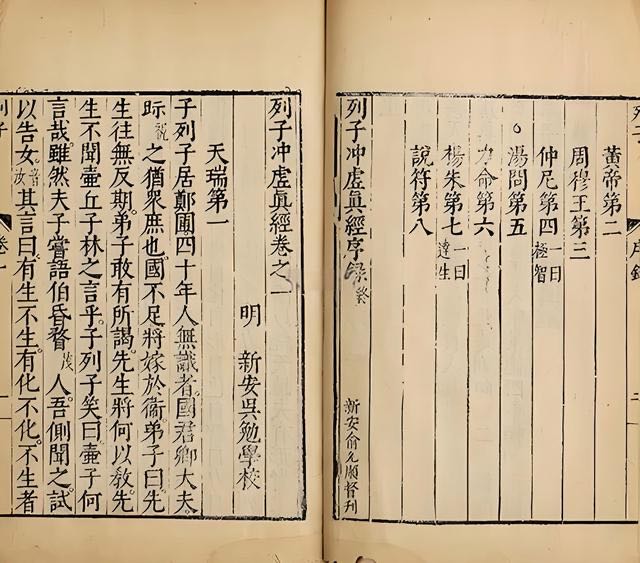 黃帝第二
周穆王第三
仲尼第四一曰極智
湯問第五
力命第六
楊朱第七一曰達生
說符第八
列子冲虛眞經序錄終
新安俞允順督刊
列子冲虛眞經卷之一
明 新安吳勉學校
天瑞第一
子列子居鄭圃四十年人無識者國君卿大夫
眎之猶衆庶也國不足將嫁於衞弟子曰先
生往無反期弟子敢有所謁先生將何以敎先
生不聞壺丘子林之言乎子列子笑曰壺子何
言哉雖然夫子嘗語伯昏瞀茂人吾側聞之試
以告女音汝其言曰有生不生有化不化不生者
列子
卷一
一